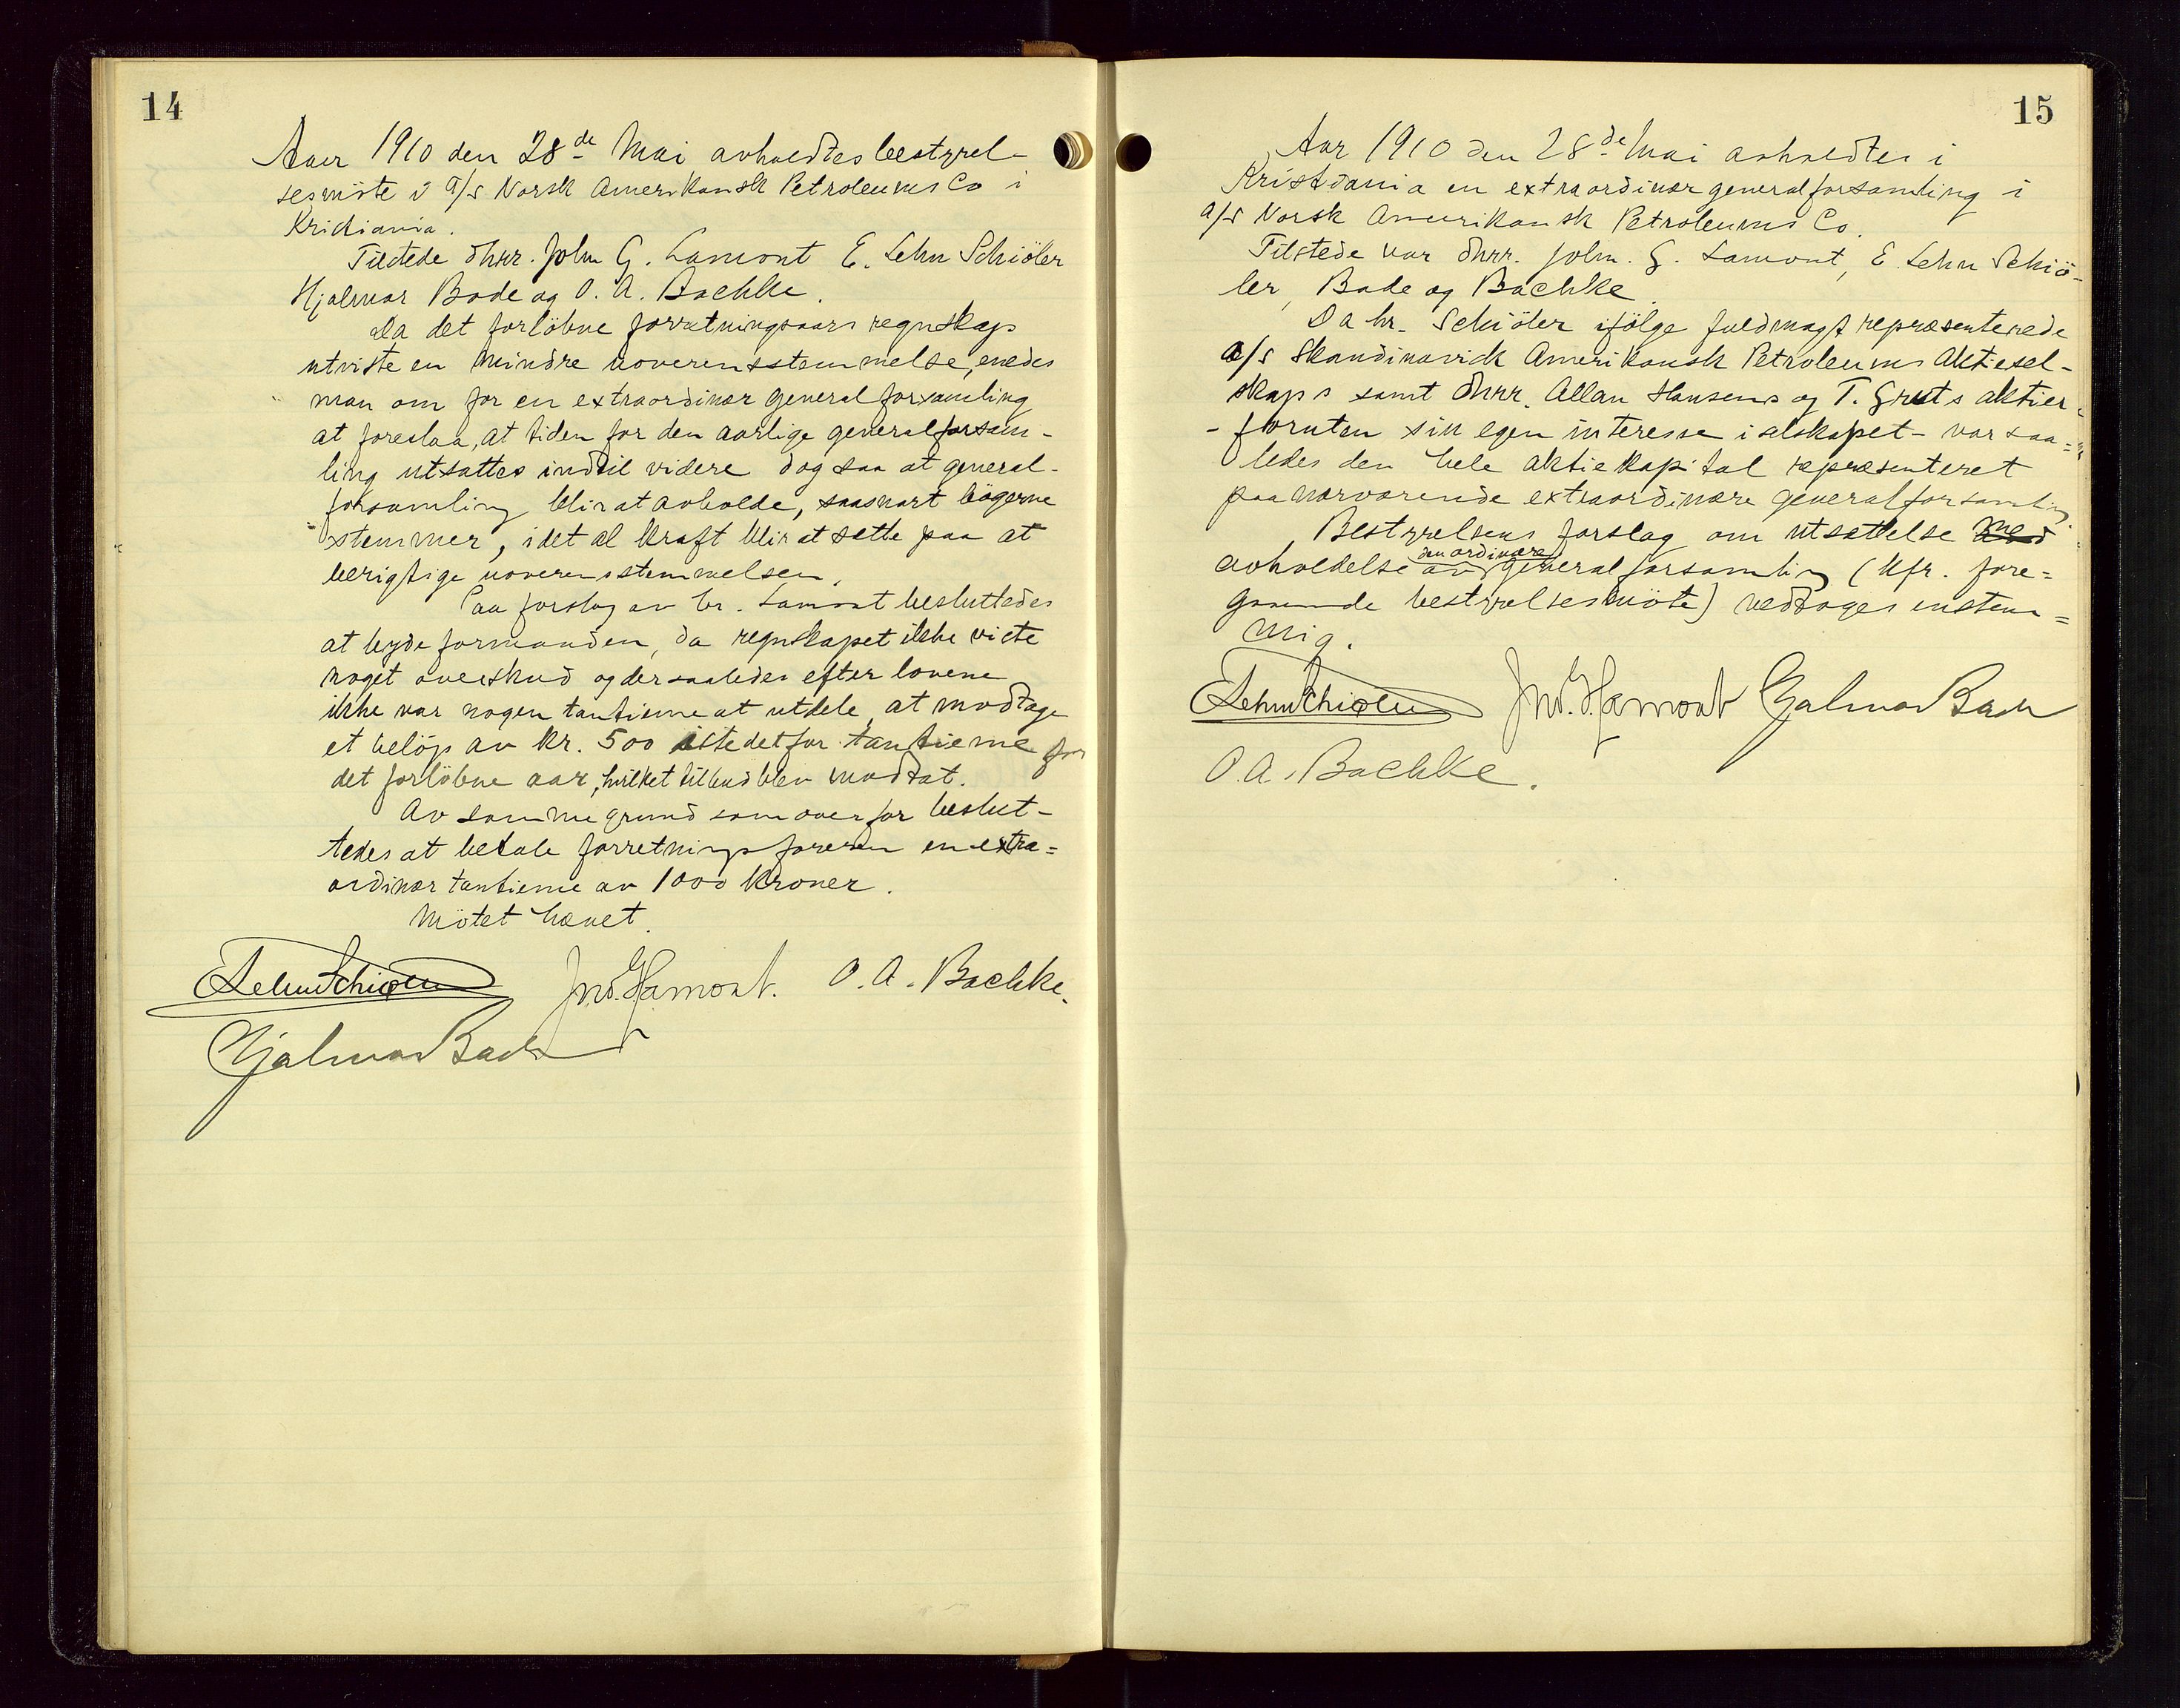 14
Aar 1910 den 28de Mai avholdtes bestyrel-
sesmöte i A/S Norsk Amerikansk Petroleums Co i
Kristiania.
Tilstede dhrr. John G. Lamont E. Lehn Schiöler
Hjalmar Bade og O. A. Bachke.
Da det forlöbne forretningsaars regnskap
utviste en mindre uoverensstemmelse, enedes
man om for en extraordinær generalforsamling
at foreslaa, at tiden for den aarlige generalforsam-
ling utsattes indtil videre dog saa at general-
forsamling blir at avholde, saasnart bögerne
stemmer, idet al kraft blir at sette paa at
berigtige uoverensstemmelsen.
Paa forslag av hr. Lamont besluttedes
at byde formanden, da regnskapet ikke viste
noget overskud og der saaledes efter lovene
ikke var nogen tantieme at utdele, at modtage
et belöp av Kr. 500 istedetfor tantieme for
det forlöbne aar, hvilket tilbud blev modtat.
Av samme grund som ovenfor beslut-
tedes at betale forretningsföreren en extra=
ordinær tantieme av 1000 Kroner.
Mötet hævet.
E Lehn Schiöler Jno. G. Lamont. O. A. Bachke.
Hjalmar Bade
15
Aar 1910 den 28de Mai avholdtes i
Kristiania en extraordinær generalforsamling i
A/S Norsk Amerikansk Petroleums Co.
Tilstede var dhrr. John. G. Lamont, E Lehn Schiö-
ler, Bade og Bachke.
Da hr. Schiöler ifölge fuldmagt repræsenterede
A/S Skandinavisk Amerikansk Petroleums Aktiesel-
skaps samt dhrr. Allan Hansens og T. Gruts aktier
- foruten sin egen interesse i selskapet - var saa=
ledes den hele aktiekapital repræsenteret
paa nærværende extraordinære generalforsamling.
Bestyrelsens forslag om utsættelse med
den ordinære
avholdelse av generalforsamling (kfr. fore=
gaaende bestyrelsesmöte) vedtoges enstem=
mig.
E Lehn Schiöler Jno. G. Lamont Hjalmar Bade
O. A. Bachke.